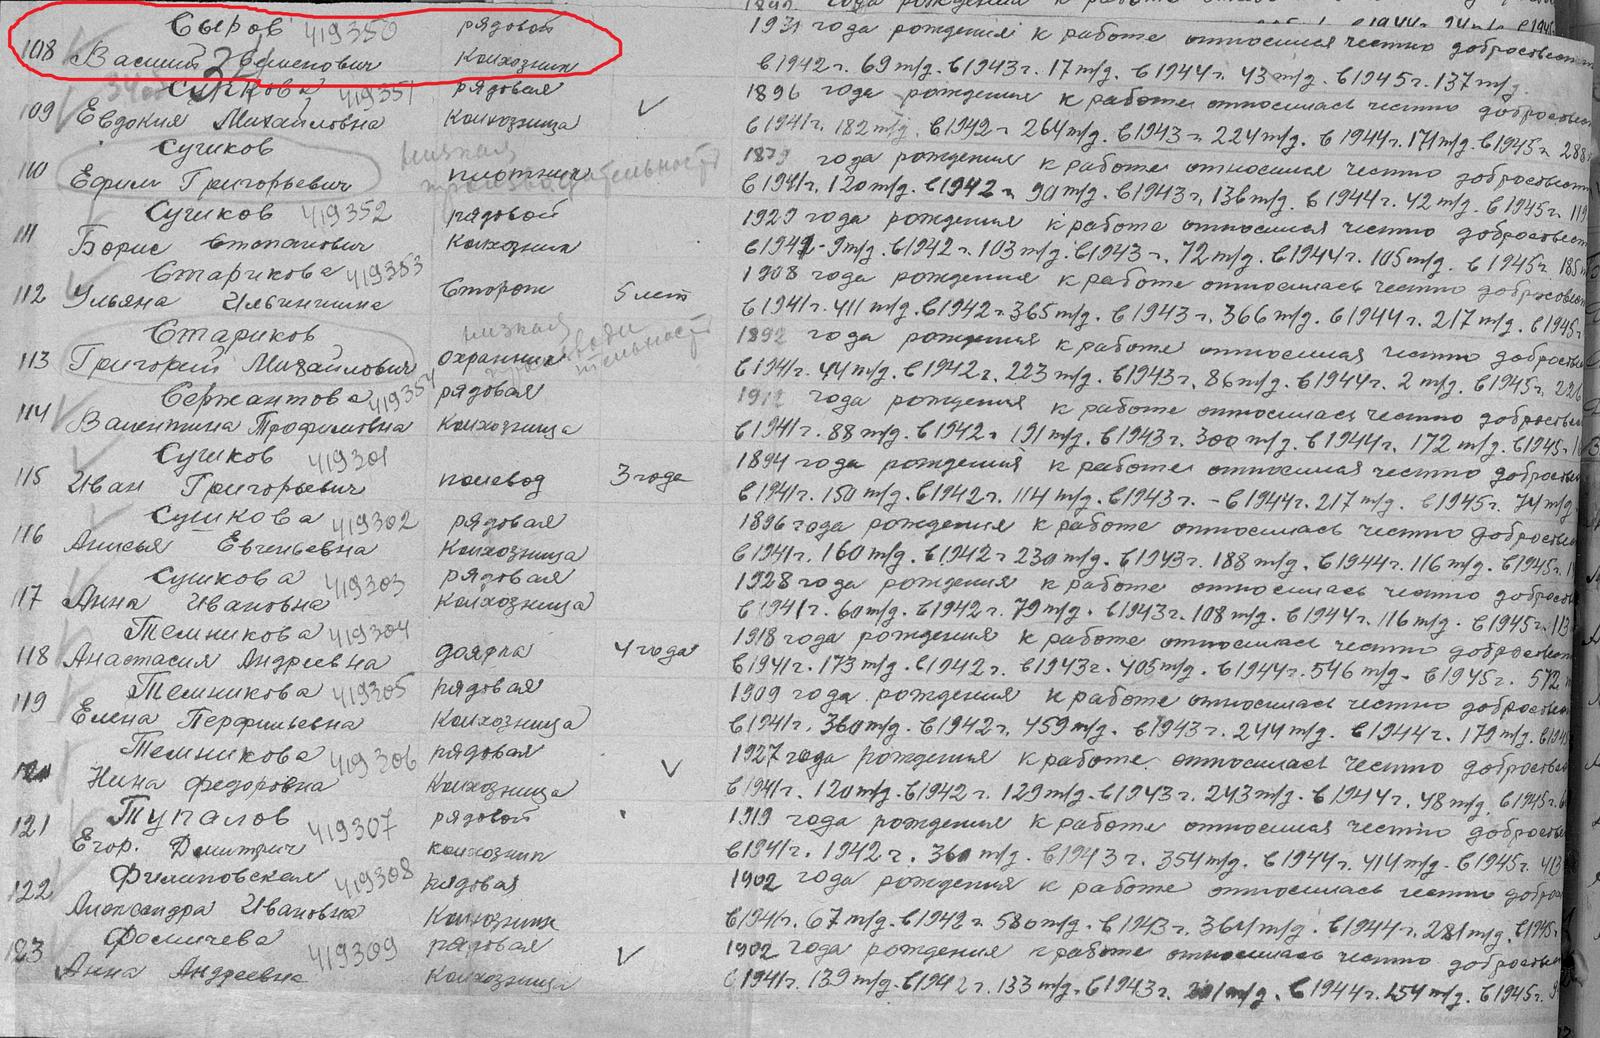 Сыров 419350 рядовой 1931 года рождения к работе относился честно добросовестно
108 Василий Семенович Колхозник в 1942 г. 69 т/д. в 1943 г. 17 т/д. в 1944 г. 43 т/д. в 1945 г. 137 т/д.
Сушкова 419351 рядовая 1896 года рождения к работе относилась честно добросовестно
109 Евдокия Михайловна Колхозница в 1941 г. 182 т/д. в 1942 г. 264 т/д. в 1943 г. 224 т/д. в 1944 г. 171 т/д. в 1945 г. 288
Сушков низкая 1879 года рождения к работе относился честно добросовестно
110 Ефим Григорьевич плотник производительность в 1941 г. 120 т/д. в 1942 г. 90 т/д. в 1943 г. 136 т/д. в 1944 г. 42 т/д. в 1945 г. 119
Сушков 419352 рядовой 1929 года рождения к работе относился честно добросовестно
111 Борис Степанович Колхозник в 1941 - 9 т/д. в 1942 г. 103 т/д. в 1943 г. 72 т/д. в 1944 г. 105 т/д. в 1945 г. 185 т/д
Старикова 419353 1908 года рождения к работе относилась честно добросовестно
112 Ульяна Ильинична Сторож 5 лет в 1941 г. 411 т/д. в 1942 г. 365 т/д. в 1943 г. 366 т/д. в 1944 г. 217 т/д. в 1945 г.
Стариков низкая 1892 года рождения к работе относился честно добросовестно
113 Григорий Михайлович охранник производительность в 1941 г. 44 т/д. в 1942 г. 223 т/д. в 1943 г. 86 т/д. в 1944 г. 2 т/д. в 1945 г. 226
Сержантова 419354 рядовая 1912 года рождения к работе относилась честно добросовестно
114 Валентина Трофимовна Колхозница в 1941 г. 88 т/д. в 1942 г. 191 т/д. в 1943 г. 300 т/д. в 1944 г. 172 т/д. в 1945 г.
Сушков 419301 1894 года рождения к работе относился честно добросовестно
115 Иван Григорьевич полевод 3 года в 1941 г. 150 т/д. в 1942 г. 114 т/д. в 1943 г. - в 1944 г. 217 т/д. в 1945 г. 74 т/д.
Сушкова 419302 рядовая 1896 года рождения к работе относилась честно добросовестно
116 Анисья Евгеньевна Колхозница в 1941 г. 160 т/д. в 1942 г. 230 т/д. в 1943 г. 188 т/д. в 1944 г. 116 т/д. в 1945 г.
Сушкова 419303 рядовая 1928 года рождения к работе относилась честно добросовестно
117 Анна Ивановна Колхозница в 1941 г. 60 т/д. в 1942 г. 79 т/д. в 1943 г. 108 т/д. в 1944 г. 116 т/д. в 1945 г. 113
Темникова 419304 1918 года рождения к работе относилась честно добросовестно
118 Анастасия Андреевна доярка 4 года в 1941 г. 173 т/д. в 1942 г. в 1943 г. 405 т/д. в 1944 г. 546 т/д. в 1945 г. 572
Темникова 419305 рядовая 1909 года рождения к работе относилась честно добросовестно
119 Елена Перфильевна Колхозница в 1941 г. 360 т/д. в 1942 г. 459 т/д. в 1943 г. 244 т/д. в 1944 г. 179 т/д. в 1945
Темникова 419306 рядовая 1927 года рождения к работе относилась честно добросовестно
120 Нина Федоровна Колхозница в 1941 г. 120 т/д. в 1942 г. 129 т/д. в 1943 г. 243 т/д. в 1944 г. 48 т/д. в 1945 г.
Тупалов 419307 рядовой 1919 года рождения к работе относился честно добросовестно
121 Егор. Дмитрич колхозник в 1941 г. 1942 г. 360 т/д. в 1943 г. 354 т/д. в 1944 г. 414 т/д. в 1945 г. 413
Филиповская 419308 рядовая 1902 года рождения к работе относилась честно добросов
122 Александра Ивановна Колхозник в 1941 г. 67 т/д. в 1942 г. 580 т/д. в 1943 г. 364 т/д. в 1944 г. 281 т/д. в 1945 г.
Фомичева 419309 рядовая 1902 года рождения к работе относилась честно добросовест
123 Анна Андреевна колхозница в 1941 г. 139 т/д. в 1942 г. 133 т/д. в 1943 г. 201 т/д. в 1944 г. 154 т/д. в 1945 г.